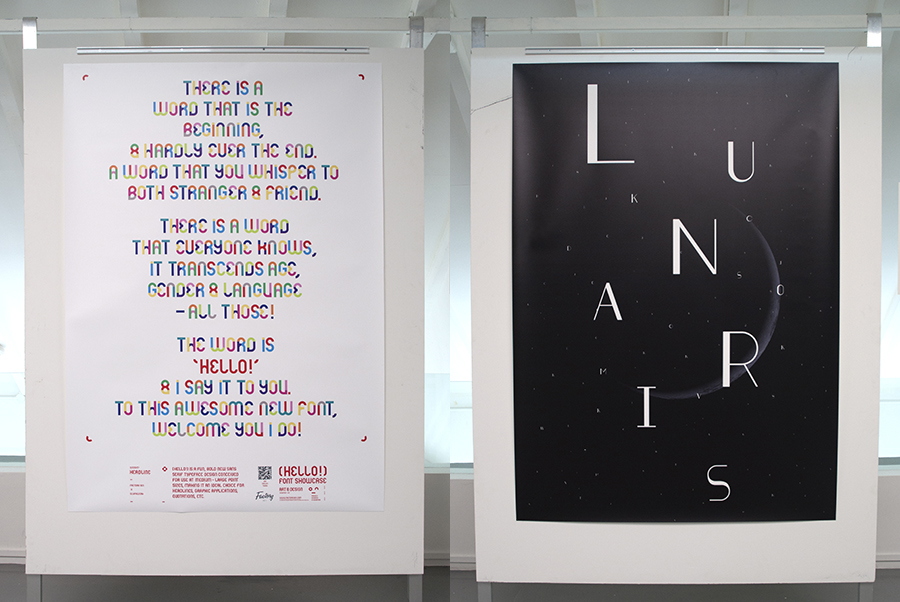 THERE IS A
WORD THAT IS THE
BEGINNING,
& HARDLY EVER THE END.
A WORD THAT YOU WHISPER TO
BOTH STRANGER & FRIEND.
THERE IS A WORD
THAT EVERYONE KNOWS,
IT TRANSCENDS AGE,
GENDER & LANGUAGE
- ALL THOSE!
THE WORD IS
‘HELLO!’
& I SAY IT TO YOU.
TO THIS AWESOME NEW FONT,
WELCOME YOU I DO!
HEADLINE
(HELLO!) IS A FUN, BOLD NEW SANS
SERIF TYPEFACE DESIGN CONCEIVED
FOR USE AT MEDIUM - LARGE FONT
SIZES, MAKING IT AN IDEAL CHOICE FOR
HEADLINES, GRAPHIC APPLICATIONS,
QUOTATIONS, ETC.
Factory
(HELLO!)
FONT SHOWCASE
ART & DESIGN
L
U
K
C
N
S
O
A
R
M
I
S